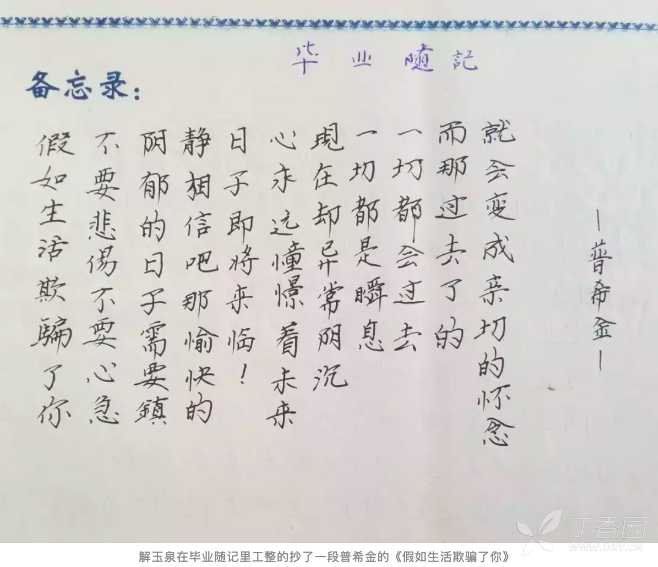 毕业随記
备忘录：
假如生活欺骗了你
不要悲伤不要心急
阴郁的日子需要鎮
静相信吧那愉快的
日子即将来临！
心永远憧憬着未来
现在却异常阴沉
一切都是瞬息
一切都会过去
而那过去了的
就会变成亲切的怀念
—普希金—
丁香园
DXY.CN
解玉泉在毕业随记里工整的抄了一段普希金的《假如生活欺骗了你》